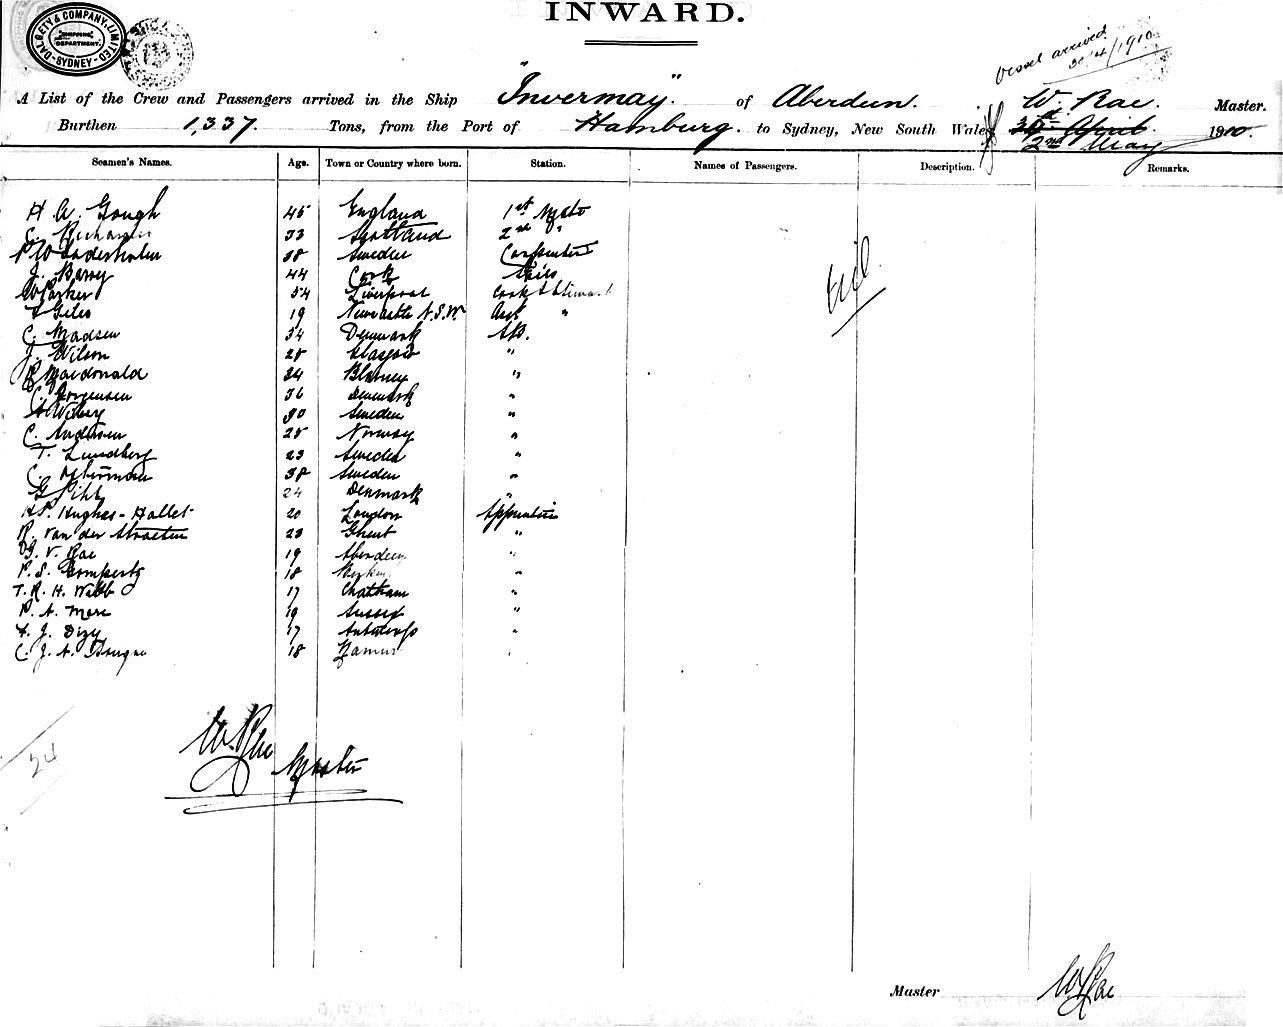 INWARD.
DALGETY & COMPANY, LIMITED
SHIPPING DEPARTMENT.
SYDNEY
Vessel arrived
30/4/1910
A List of the Crew and Passengers arrived in the Ship "Invermay" of Aberdeen. W. Rae. Master.
Burthen 1,337. Tons, from the Port of Hamburg. to Sydney, New South Wales 30th April. 1910.
2nd May
Seamen's Names. Age. Town or Country where born. Station. Names of Passengers. Description. Remarks.
H A. Gough 45 England 1st Mate
C. 33 Scotland 2nd "
38 Sweden Carpenter
J. Barry 44 Cork
Parker 54 Liverpool Cook & Steward
Giles 19 Newcastle N.S.W. Asst "
C. Madsen 34 Denmark AB.
J. Wilson 28 Glasgow "
Macdonald 24 "
C. Jorgensen 36 Denmark "
30 Sweden "
C. Andersen 28 Norway "
T. Lundberg 23 Sweden "
C. 38 Sweden "
G 24 Denmark "
Hughes-Hallet 20 London Apprentice
R. Van der Straeten 23 Ghent "
V. Rae 19 Aberdeen "
P. S. Gompertz 18 "
T. R. H. Webb 17 Chatham "
P. A. More 19 Sussex "
J. Dizy 17 "
C. J. A. 18 Namur "
Nil.
W. Rae Master
24
Master W Rae